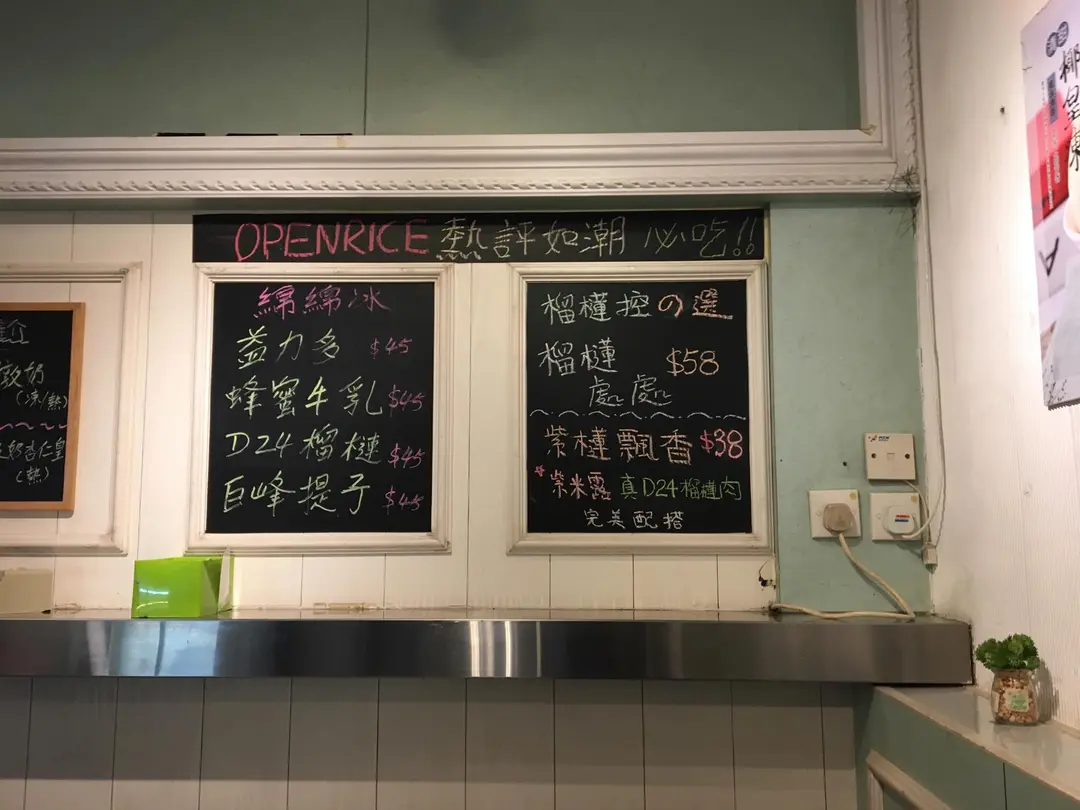 OPENRICE 熱評如潮 必吃!!
綿綿冰
益力多 $45
蜂蜜牛乳 $45
D24榴槤 $45
巨峰提子 $45
榴槤控の選
榴槤 $58
處處
紫槤飄香 $38
*紫米露 真D24榴槤肉
完美配搭
奶
(凍/熱)
奶杏仁皇
(熱)
椰皇凍